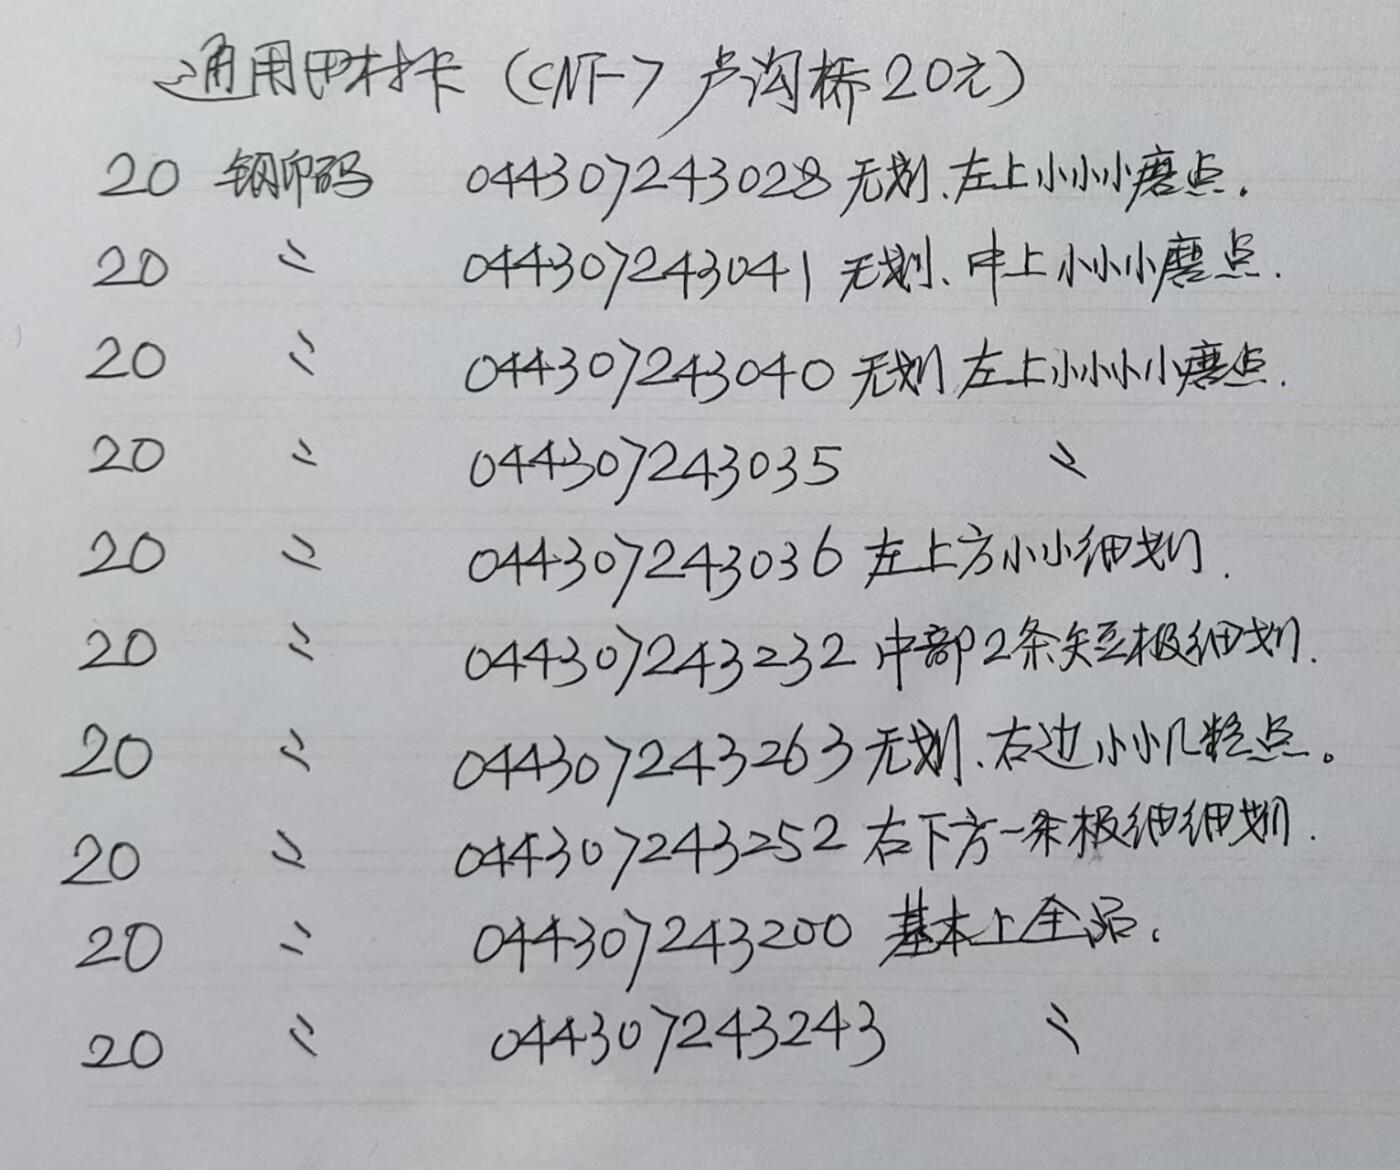 通用田村卡（CNT-7 卢沟桥20元）
20 钢印码 044307243028 无划、左上小小小磨点.
20 〃 044307243041 无划、中上小小小磨点.
20 〃 044307243040 无划 左上小小小小磨点.
20 〃 044307243035 〃
20 〃 044307243036 左上方小小细划.
20 〃 044307243232 中部2条短极细划.
20 〃 044307243263 无划、右边小小几粒点。
20 〃 044307243252 右下方一条极细细划.
20 〃 044307243200 基本上全品.
20 〃 044307243243 〃